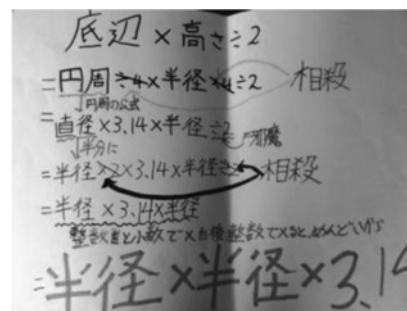 底辺×高さ÷2
=円周÷4×半径×4÷2 相殺
円周の公式
=直径×3.14×半径÷2 邪魔
半分に
=半径×2×3.14×半径÷2 相殺
=半径×3.14×半径
整数×小数で×た後整数で×と、めんどいから
=半径×半径×3.14